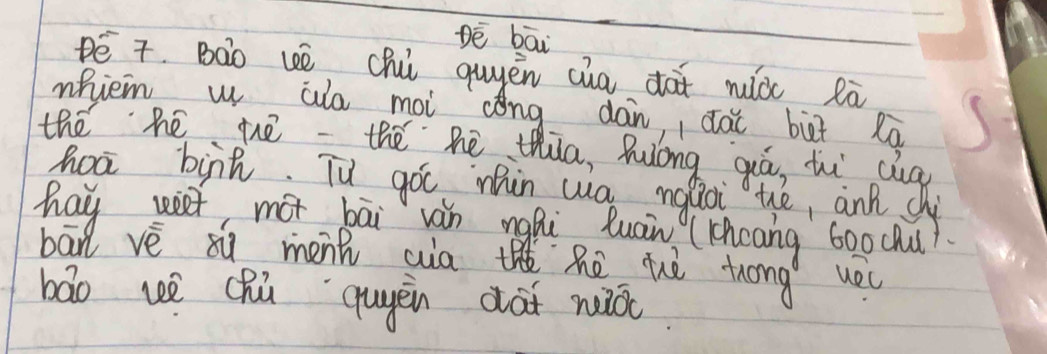 Đề bài
Đề 7. Bảo vệ chủ quyền của đất nước là
nhiệm vụ của mọi công dân, đặc biệt là
thế hệ trẻ - thế hệ thừa hưởng giá trị của
hoà bình. Từ góc nhìn của người trẻ, anh chị
hãy viết một bài văn nghị luận (khoảng 600 chữ).
bàn về sứ mệnh của thế hệ trẻ trong việc
bảo vệ chủ quyền đất nước.